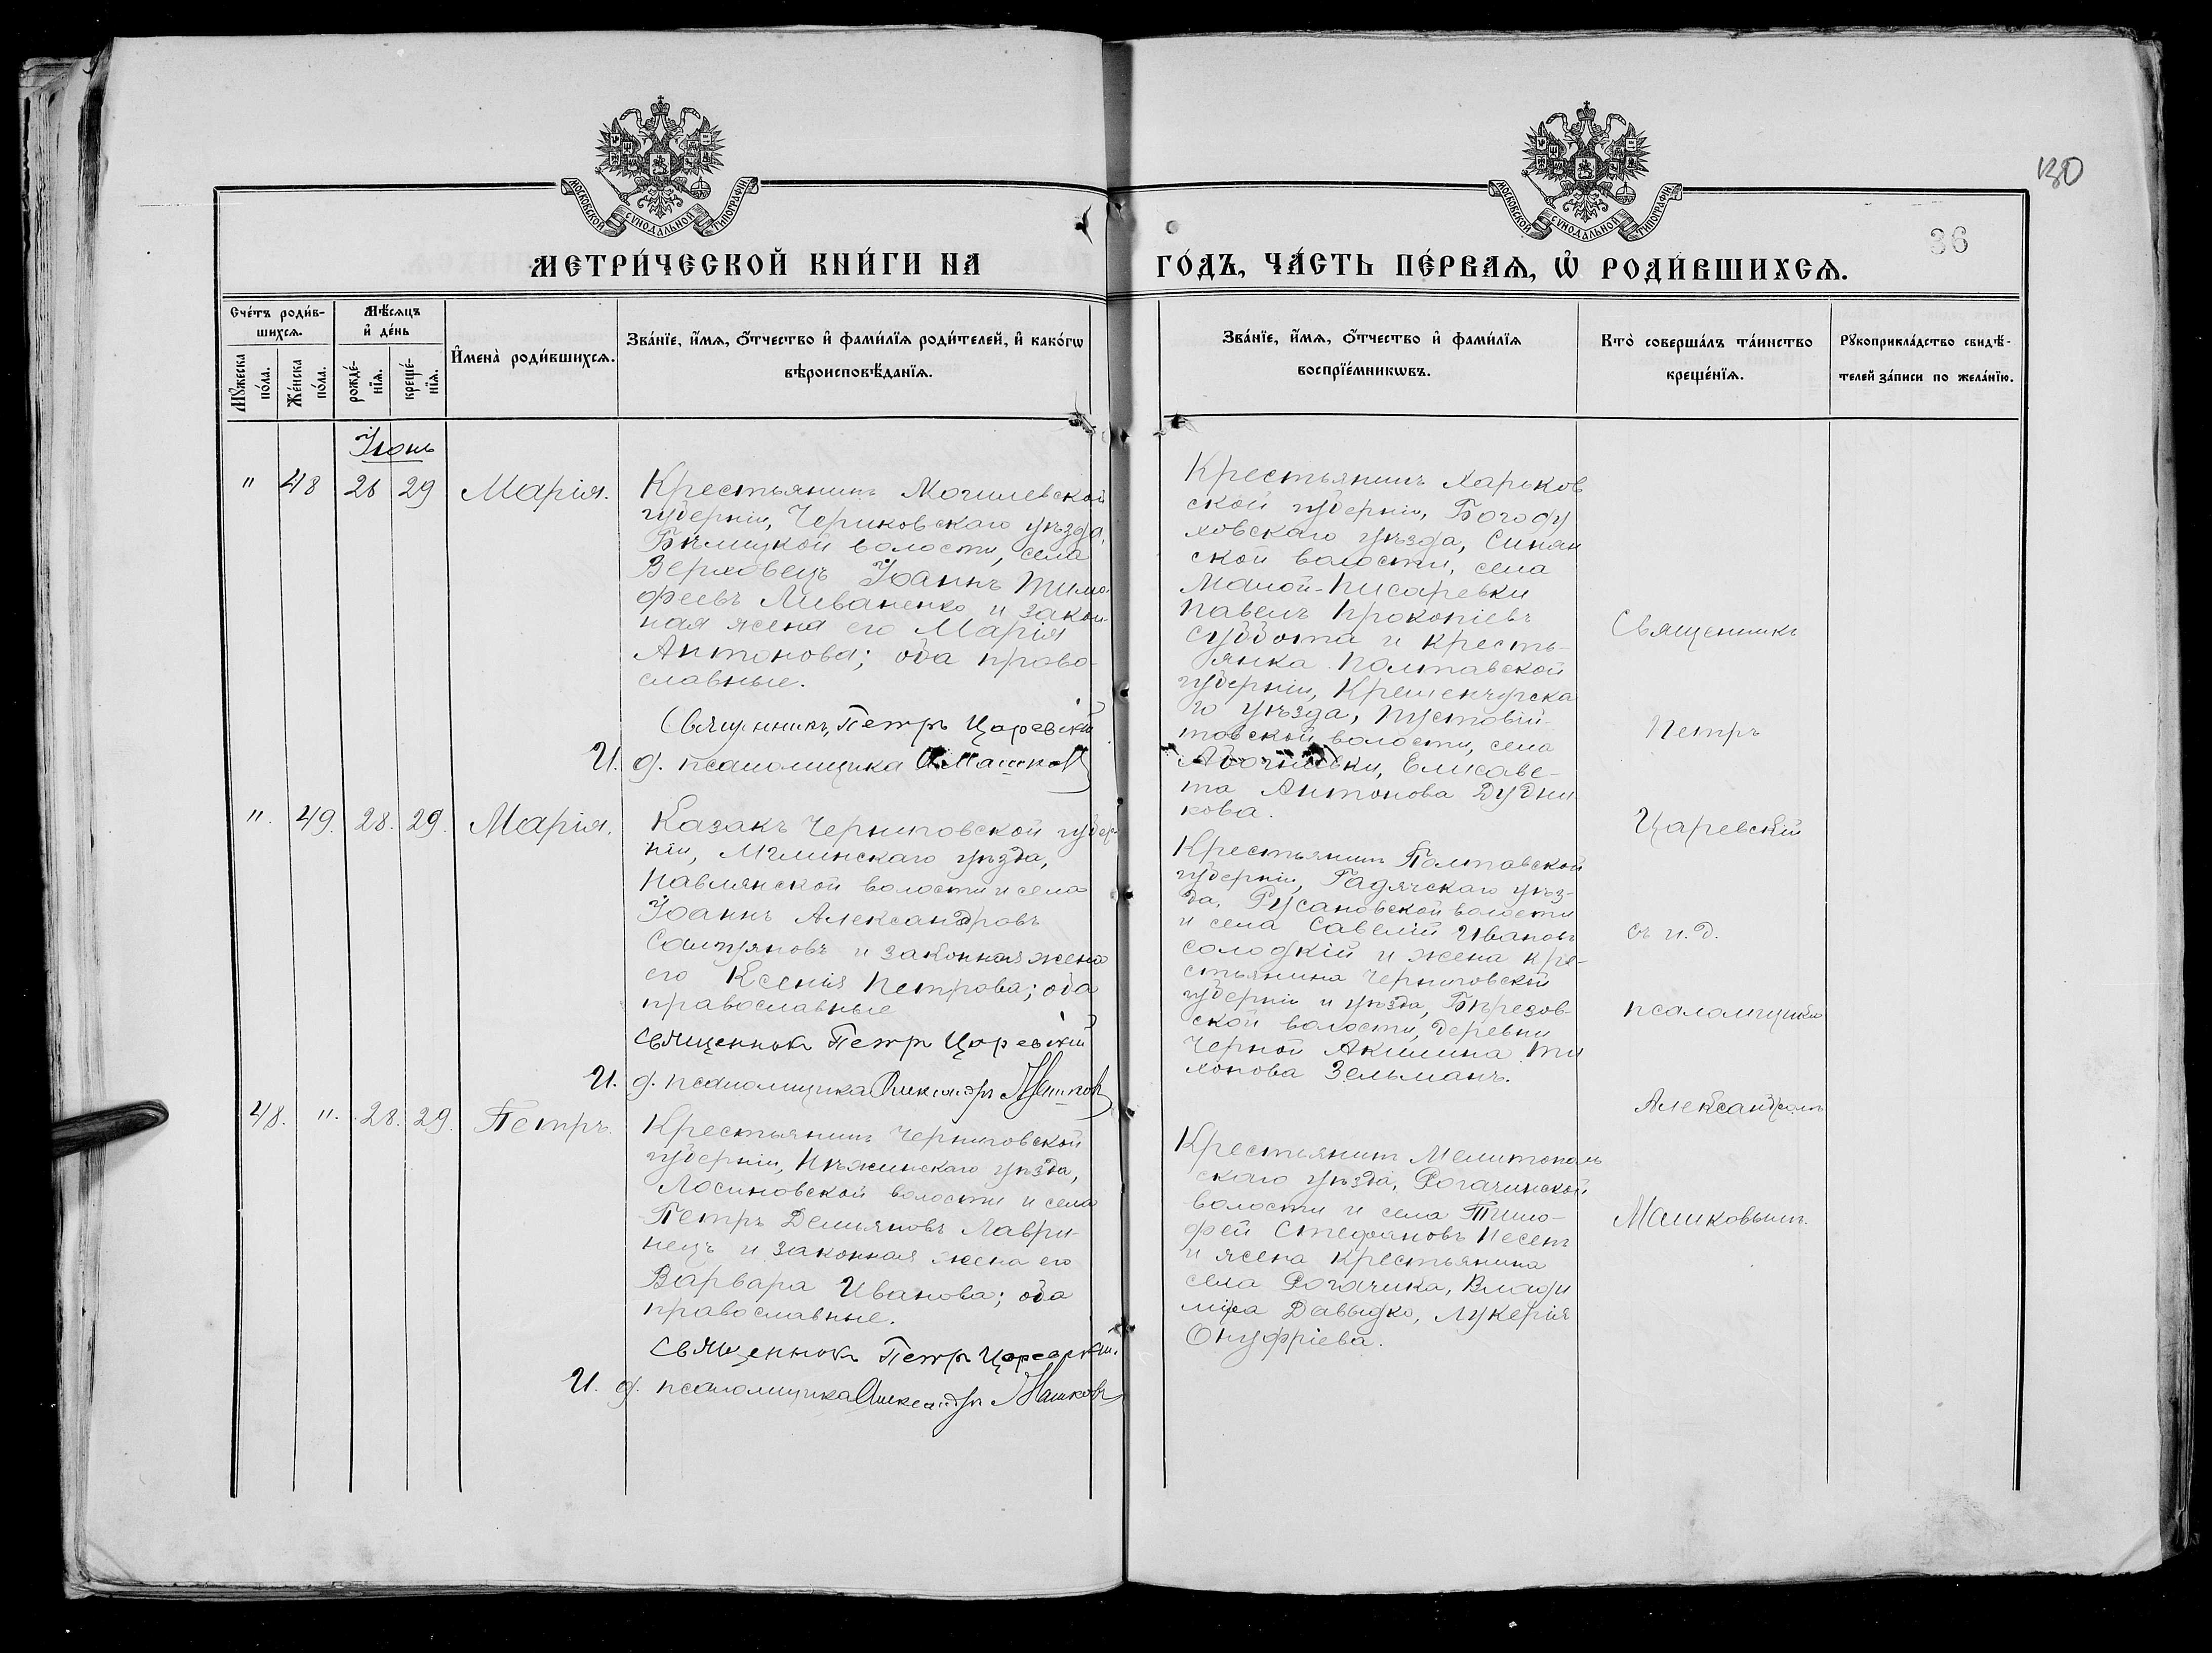 130
36
МОСКОВСКОЙ СѴНОДАЛЬНОЙ ТИПОГРАФІИ
МОСКОВСКОЙ СѴНОДАЛЬНОЙ ТИПОГРАФІИ
МЕТРИ́ЧЕСКОЙ КНИ́ГИ НА
ГО́ДЪ, ЧА́СТЬ ПЕ́РВАѦ, Ѽ РОДИ́ВШИХСѦ.
Сче́тъ роди́в-
шихсѧ.
Мꙋ́жеска
по́ла.
Же́нска
по́ла.
Мѣ́сѧцъ
и҆ де́нь
рожде́-
нїѧ.
креще́-
нїѧ.
И҆мена̀ роди́вшихсѧ.
Зва́нїе, и҆́мѧ, ѻ҆́тчество и҆ фами́лїѧ роди́телей, и҆ како́гѡ
вѣроисповѣ́данїѧ.
Зва́нїе, и҆́мѧ, ѻ҆́тчество и҆ фами́лїѧ
воспрїе́мникѡвъ.
Кто̀ соверша́лъ та́инство
креще́нїѧ.
Рꙋкоприкла́дство свидѣ́-
телей за́писи по жела́нїю.
Іюнь
" 48 26 29 Марія.
Крестьянинъ Могилевской
губерніи, Чериковскаго уѣзда,
волости, села
Верховецъ Іоаннъ Тимо-
феевъ Ливаненко и закон-
ная жена его Марія
Антонова; оба право-
славные.
Священникъ Петръ Царевскій
И. д. псаломщика А Машковъ
Крестьянинъ Харьков
ской губерніи, Богоду
ховскаго уѣзда, Синян
ской волости, села
Малой-Писаревки
Павелъ Прокопіевъ
Суббота и кресть-
янка Полтавской
губерніи, Кременчугска
го уѣзда, Пустовій-
товской волости, села
Елисаве-
та Антонова Дудни-
кова.
". 49. 28. 29. Марія.
Казакъ Черниговской губер-
ніи, Мглинскаго уѣзда,
Павлянской волости и села
Іоаннъ Александровъ
и законная жена
его Ксенія Петрова; оба
православные
Священникъ Петръ Царевскій
И. д. псаломщика Александръ Машковъ
Крестьянинъ Полтавской
губерніи, Гадячскаго уѣз-
да, Русановской волости
и села Савелій Ивановъ
Солодкій и жена кре-
стьянина Черниговской
губерніи и уѣзда, Бѣрезов-
ской волости, деревни
Черной Акилина Ти
хонова Зельманъ.
48. ". 28. 29. Петръ.
Крестьянинъ Черниговской
губерніи, Нѣжинскаго уѣзда,
Лосиновской волости и села
Петръ Демьяновъ Лаври-
нецъ и законная жена его
Варвара Иванова; оба
православные.
Священникъ Петръ Царевскій.
И. д. псаломщика Александръ Машковъ
Крестьянинъ Мелитополь
скаго уѣзда, Рогачинской
волости и села Тимо-
фей Стефановъ Песет
и жена крестьянина
села Рогачика, Влади
міра Давыдко, Лукерія
Онуфріева.
Священникъ
Петръ
Царевскій
съ и. д.
псаломщика
Александромъ
Машковымъ.